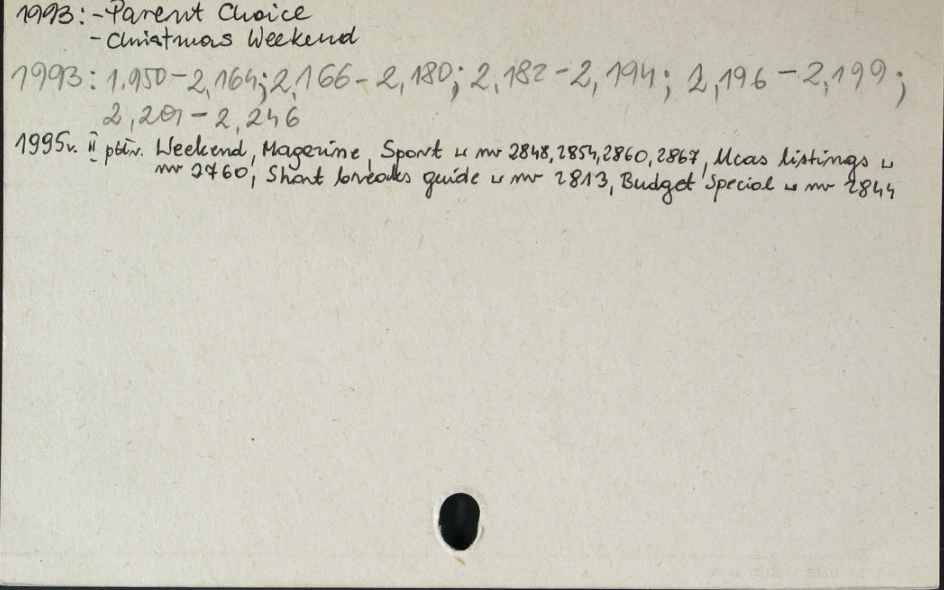 1993: - Parent Choice
- Christmas Weekend
1993: 1,950 - 2,164; 2,166 - 2,180; 2,182 - 2,194; 2,196 - 2,199;
2,201 - 2,246
1995r. II półr. Weekend, Magazine, Sport w nr 2848, 2854, 2860, 2867, Ucas listings w
nr 2760, Short breaks guide w nr 2813, Budget Special w nr 2844